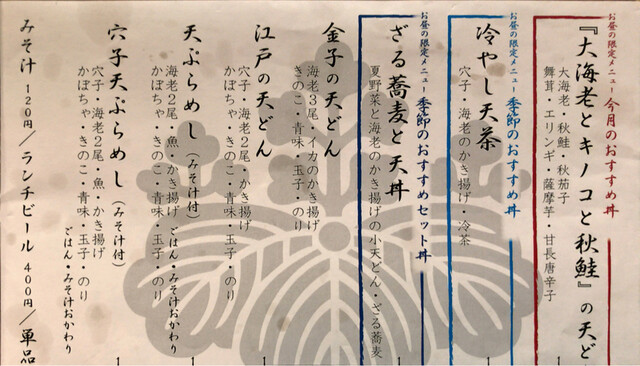 お昼の限定メニュー 今月のおすすめ丼
『大海老とキノコと秋鮭』の天ど
大海老・秋鮭・秋茄子
舞茸・エリンギ・薩摩芋・甘長唐辛子
お昼の限定メニュー 季節のおすすめ丼
冷やし天茶
穴子・海老のかき揚げ・冷茶
お昼の限定メニュー 季節のおすすめセット丼
ざる蕎麦と天丼
夏野菜と海老のかき揚げの小天どん・ざる蕎麦
金子の天どん
海老3尾・イカのかき揚げ
きのこ・青味・玉子・のり
江戸の天どん
穴子・海老2尾・かき揚げ
かぼちゃ・きのこ・青味・玉子・のり
天ぷらめし(みそ汁付)
海老2尾・魚・かき揚げ
かぼちゃ・きのこ・青味・玉子・のり
ごはん・みそ汁おかわり
穴子天ぷらめし(みそ汁付)
穴子・海老2尾・魚・かき揚げ
かぼちゃ・きのこ・青味・玉子・のり
ごはん・みそ汁おかわり
みそ汁 120円/ランチビール 400円/単品